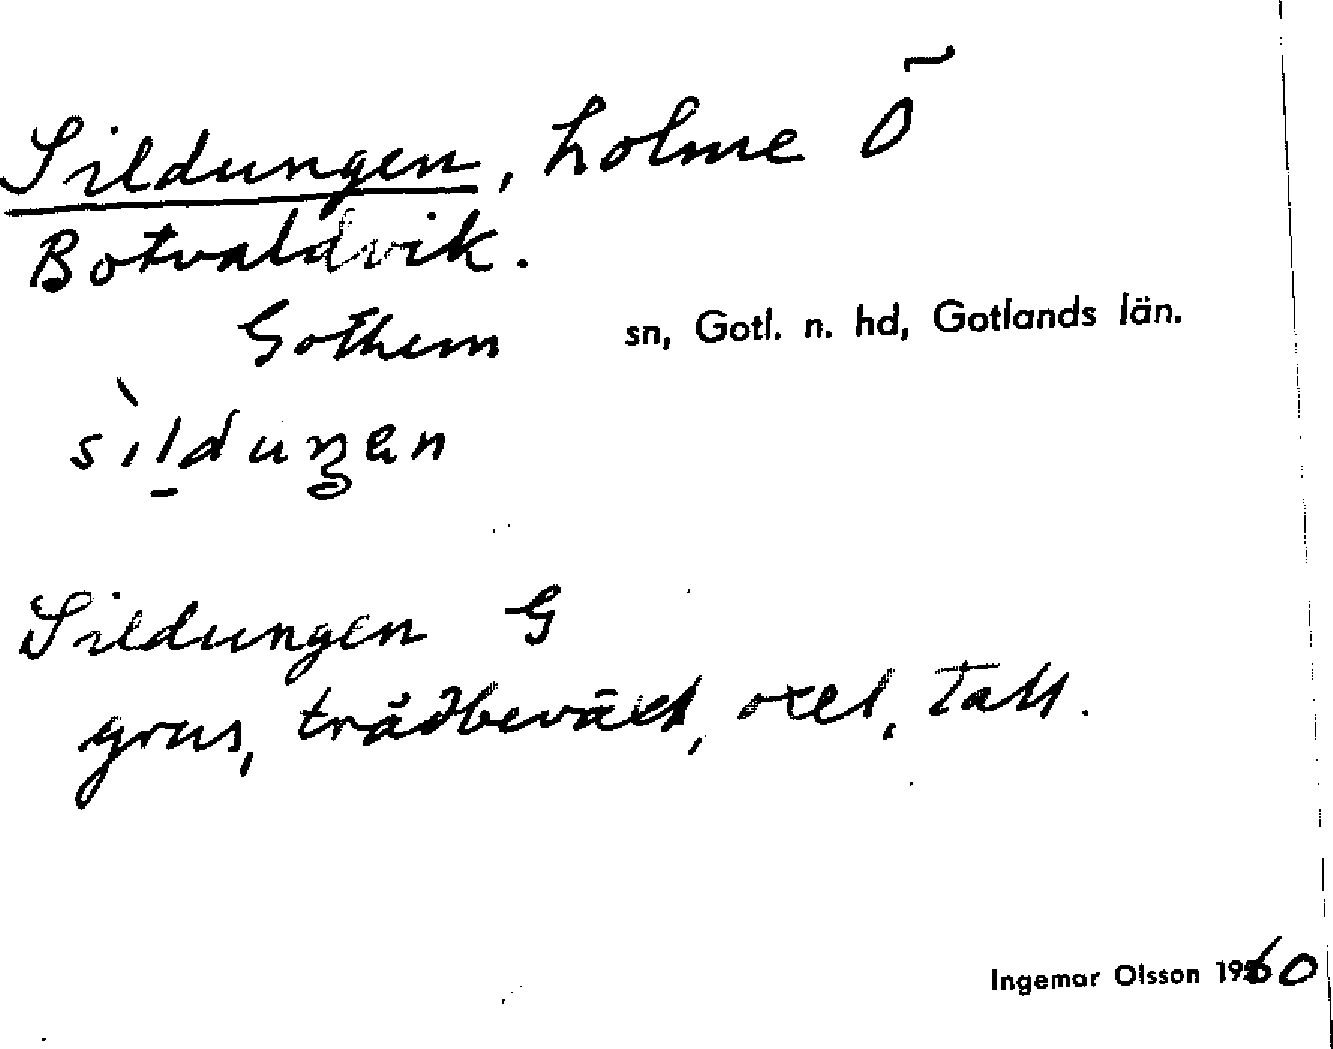 Sildungen, holme Ö
Botvaldvik.
Gothem sn, Gotl. n. hd, Gotlands län.
sìl̠duŋən
Sildungen G
grus, trädbeväxt, oxel, tall.
Ingemar Olsson 1960